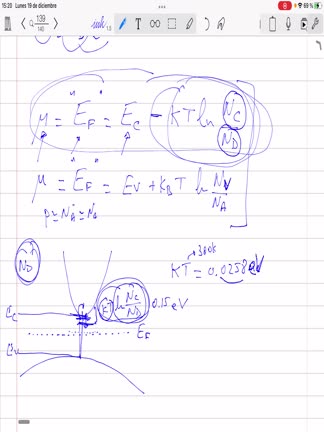 15:20 Lunes 19 de diciembre
69 %
139
140
μ = E_F = E_C - KT ln N_C/N_D
μ = E_F = E_V + K_B T ln N_V/N_A
p ≈ N_A⁻ ≈ N_A
N_D
300k
KT = 0.0258 eV
E_C
KT ln N_C/N_D 0.15 eV
E_F
E_V